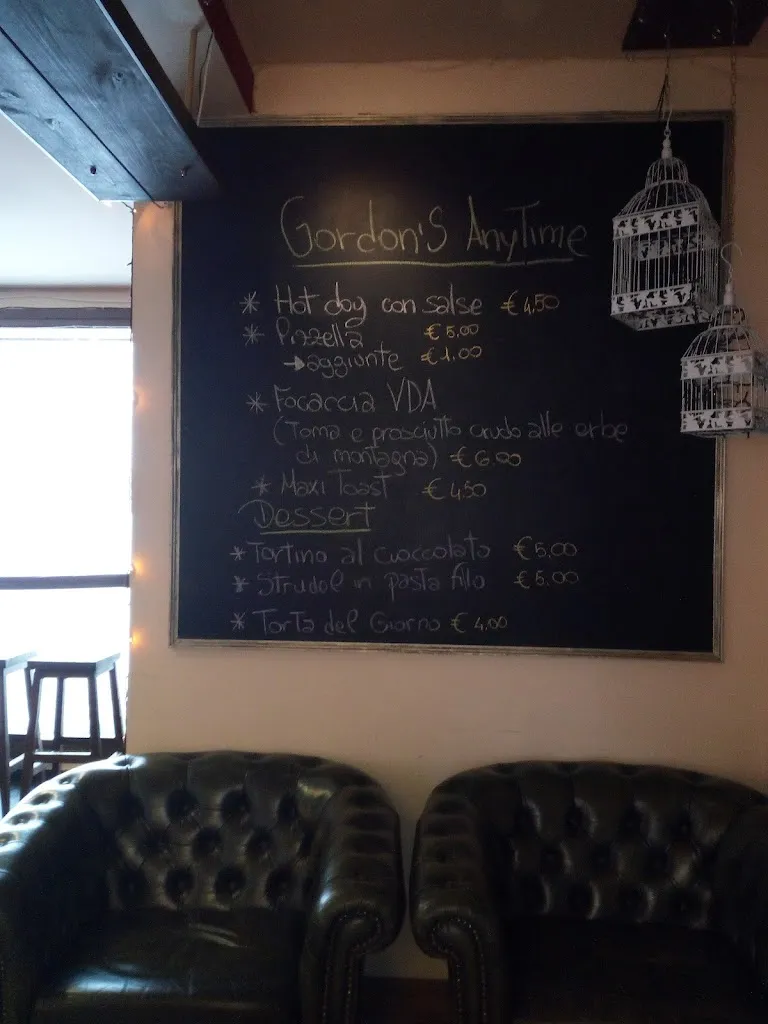 Gordon's AnyTime
* Hot dog con salse € 4,50
* Pizzella € 5.00
→ aggiunte € 1.00
* Focaccia VDA
(Toma e prosciutto crudo alle erbe
di montagna) € 6.00
* Maxi Toast € 4,50
Dessert
* Tortino al cioccolato € 5.00
* Strudel in pasta fillo € 5.00
* Torta del Giorno € 4.00